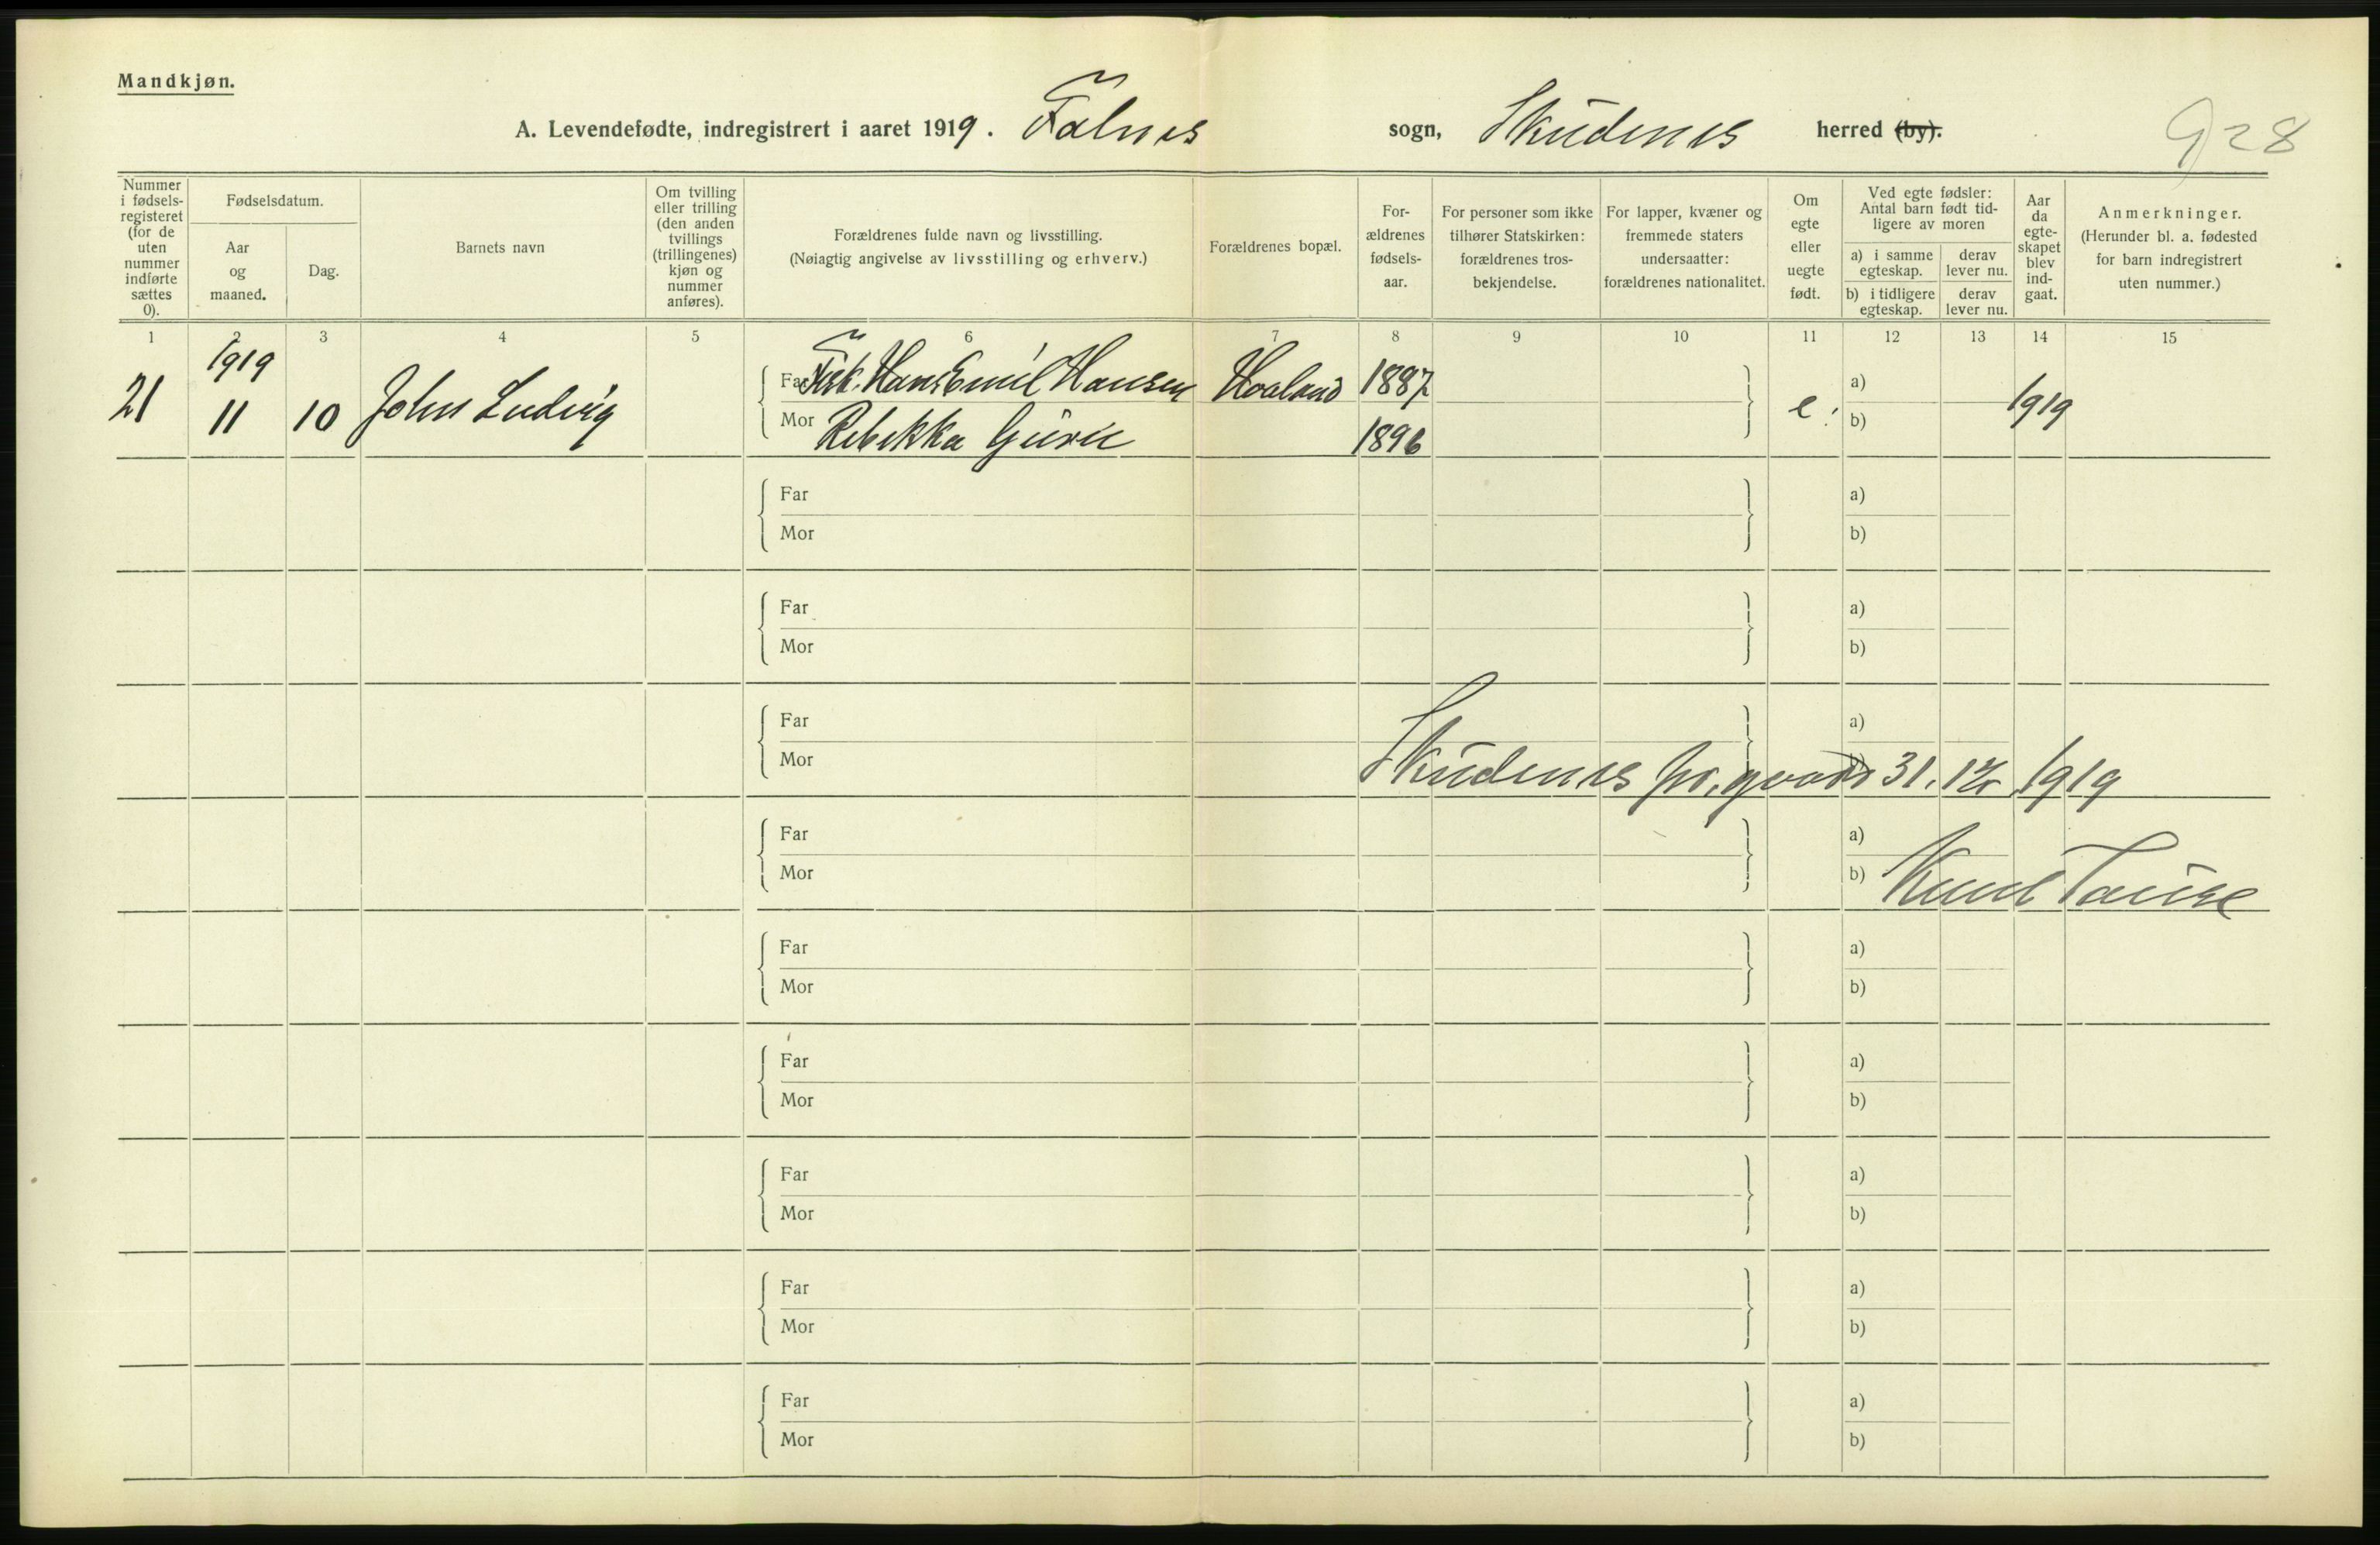 Mandkjøn.
A. Levendefødte, indregistrert i aaret 1919. Falnes sogn, Skudenes herred (by).
928
Nummer i fødselsregisteret (for de uten nummer indførte sættes 0).
Fødselsdatum.
Aar og maaned.
Dag.
Barnets navn
Om tvilling eller trilling (den anden tvillings (trillingenes) kjøn og nummer anføres).
Forældrenes fulde navn og livsstilling.
(Nøiagtig angivelse av livsstilling og erhverv.)
Forældrenes bopæl.
For-ældrenes fødsels-aar.
For personer som ikke tilhører Statskirken: forældrenes tros-bekjendelse.
For lapper, kvæner og fremmede staters undersaatter: forældrenes nationalitet.
Om egte eller uegte født.
Ved egte fødsler: Antal barn født tid-ligere av moren
a) i samme egteskap.
derav lever nu.
b) i tidligere egteskap.
derav lever nu.
Aar da egte-skapet blev ind-gaat.
Anmerkninger.
(Herunder bl. a. fødested for barn indregistrert uten nummer.)
1 2 3 4 5 6 7 8 9 10 11 12 13 14 15
21 1919 11 10 John Ludvig Far Fisk. Hans Emil Hansen Hoaland 1887 e. a) 1919
Mor Rebekka Gurie 1896 b)
Far a)
Mor b)
Far a)
Mor b)
Far a)
Mor b)
Skudenes pr.gaard 31. 12 1919
Far a)
Mor b)
Knud
Far a)
Mor b)
Far a)
Mor b)
Far a)
Mor b)
Far a)
Mor b)
Far a)
Mor b)